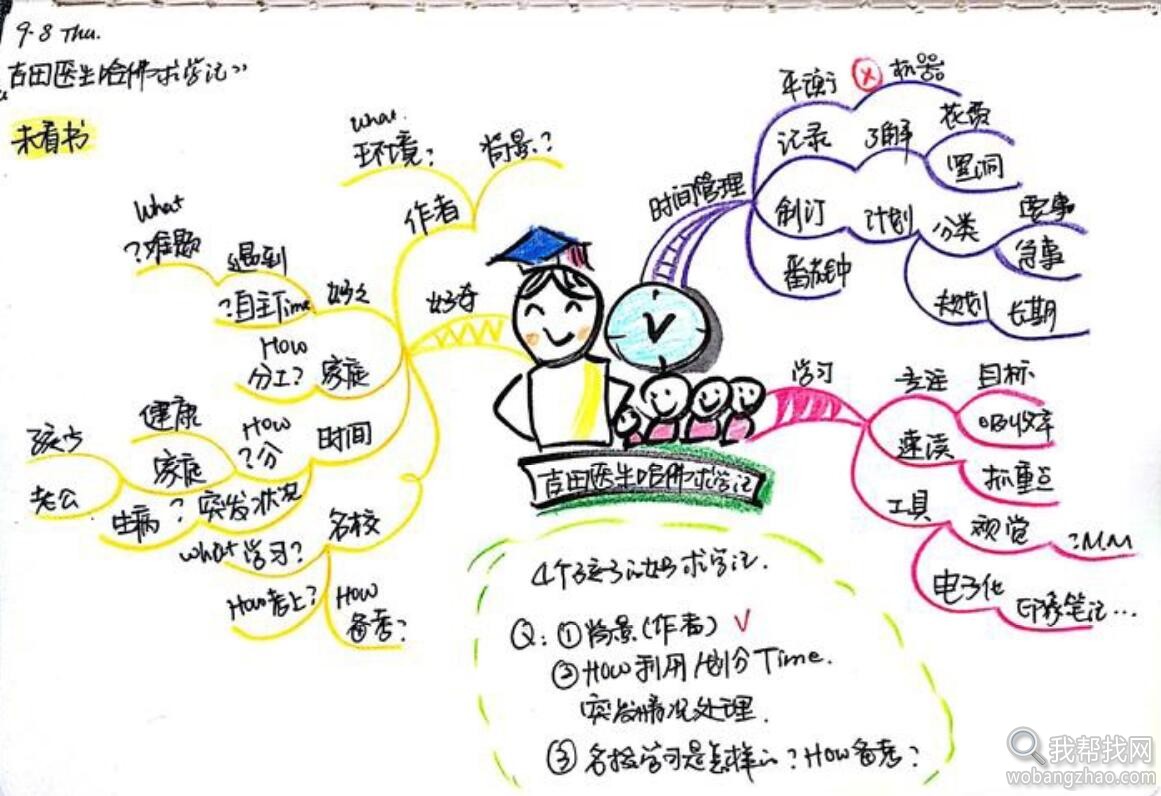 9.8 Thu.
吉田医生哈佛求学记》
未看书
what
环境?
背景?
作者
好奇
what
?难题
遇到
?自主Time
How
分工?
家庭
时间
How
?分
健康
家庭
孩子
老公
生病
?
突发状况
名校
what学习?
How考上?
How
备考?
时间管理
平衡
机器
记录
了解
花费
黑洞
制订
计划
分类
要事
急事
规划
长期
番茄钟
学习
专注
目标
吸收率
速读
抓重点
工具
视觉
?M.M
电子化
印象笔记...
吉田医生哈佛求学记
4个孩子的妈求学记.
Q:①背景(作者) √
②How利用/划分Time.
突发情况处理.
③名校学习是怎样的?How备考?
我帮找网
wobangzhao.com